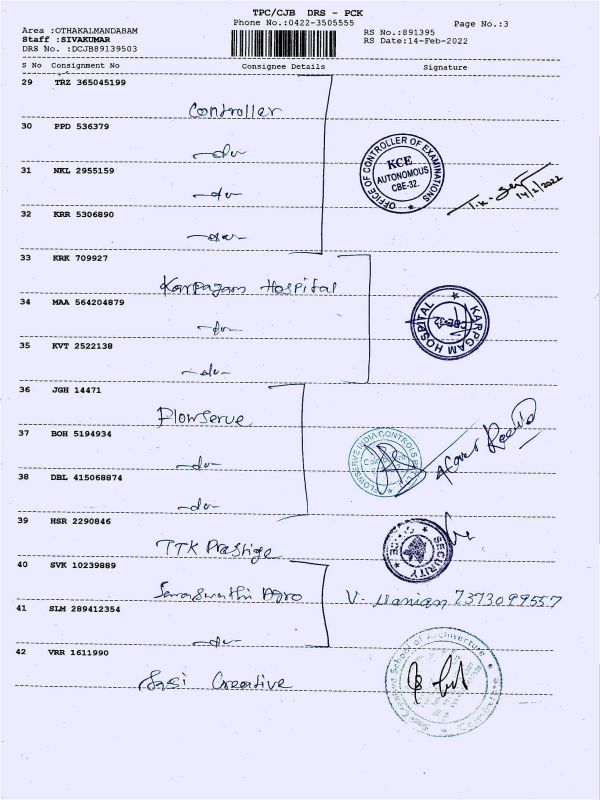 TPC/CJB DRS - PCK
Phone No.:0422-3505555
Page No.:3
Area :OTHAKALMANDABAM
Staff :SIVAKUMAR
DRS No. :DCJB89139503
RS No.:891395
RS Date:14-Feb-2022
S No Consignment No Consignee Details Signature
29 TRZ 365045199
Controller
30 PPD 536379
-do-
31 NKL 2955159
-do-
32 KRR 5306890
-do-
OFFICE OF CONTROLLER OF EXAMINATIONS
KCE
AUTONOMOUS
CBE-32.
14/2/2022
33 KRK 709927
Karpagam Hospital
34 MAA 564204879
-do-
35 KVT 2522138
-do-
KARPGAM HOSPITAL
CBE-32
36 JGH 14471
Flowserve
37 BOH 5194934
-do-
38 DBL 415068874
-do-
FLOWSERVE INDIA CONTROLS
39 HSR 2290846
TTK Prastige
SECURITY
40 SVK 10239889
Saraswathi Agro V. Manian 7373099557
41 SLM 289412354
-do-
42 VRR 1611990
Sasi Creative
School of Architecture